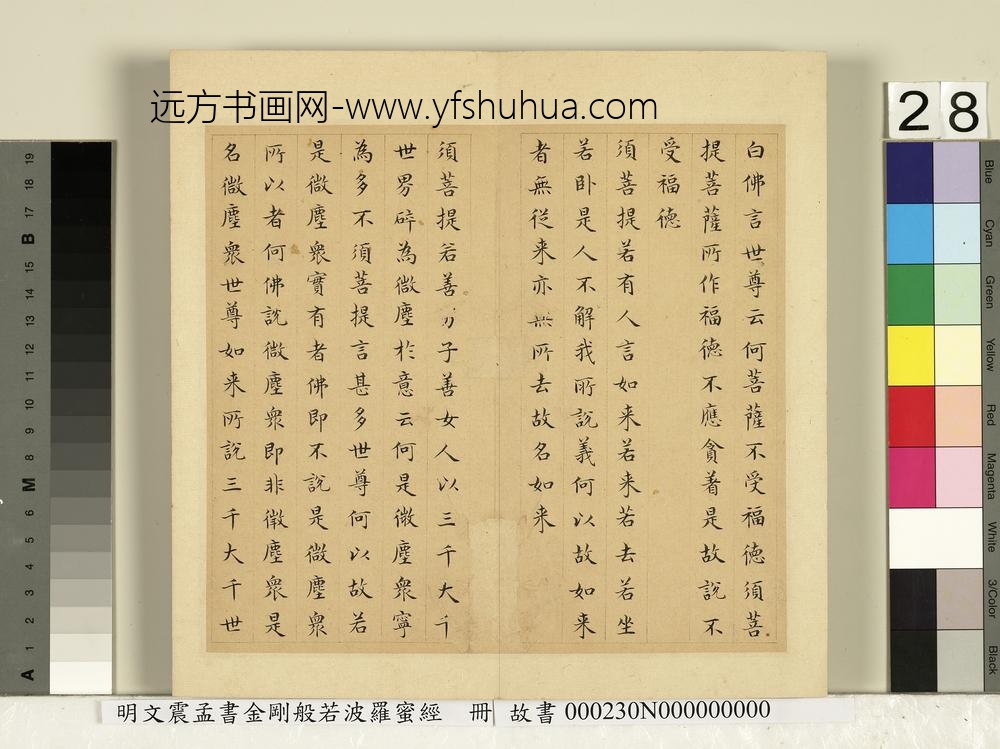 远方书画网-www.yfshuhua.com
28
白佛言世尊云何菩薩不受福德須菩
提菩薩所作福德不應貪著是故說不
受福德
須菩提若有人言如来若来若去若坐
若卧是人不解我所說義何以故如来
者無從来亦無所去故名如来
須菩提若善男子善女人以三千大千
世界碎為微塵於意云何是微塵衆寧
為多不須菩提言甚多世尊何以故若
是微塵衆實有者佛即不說是微塵衆
所以者何佛說微塵衆即非微塵衆是
名微塵衆世尊如来所說三千大千世
Blue
Cyan
Green
Yellow
Red
Magenta
White
3/Color
Black
19
18
17
B
15
14
13
12
11
10
9
8
M
6
5
4
3
2
1
A
明文震孟書金剛般若波羅蜜經 冊 故書 000230N000000000